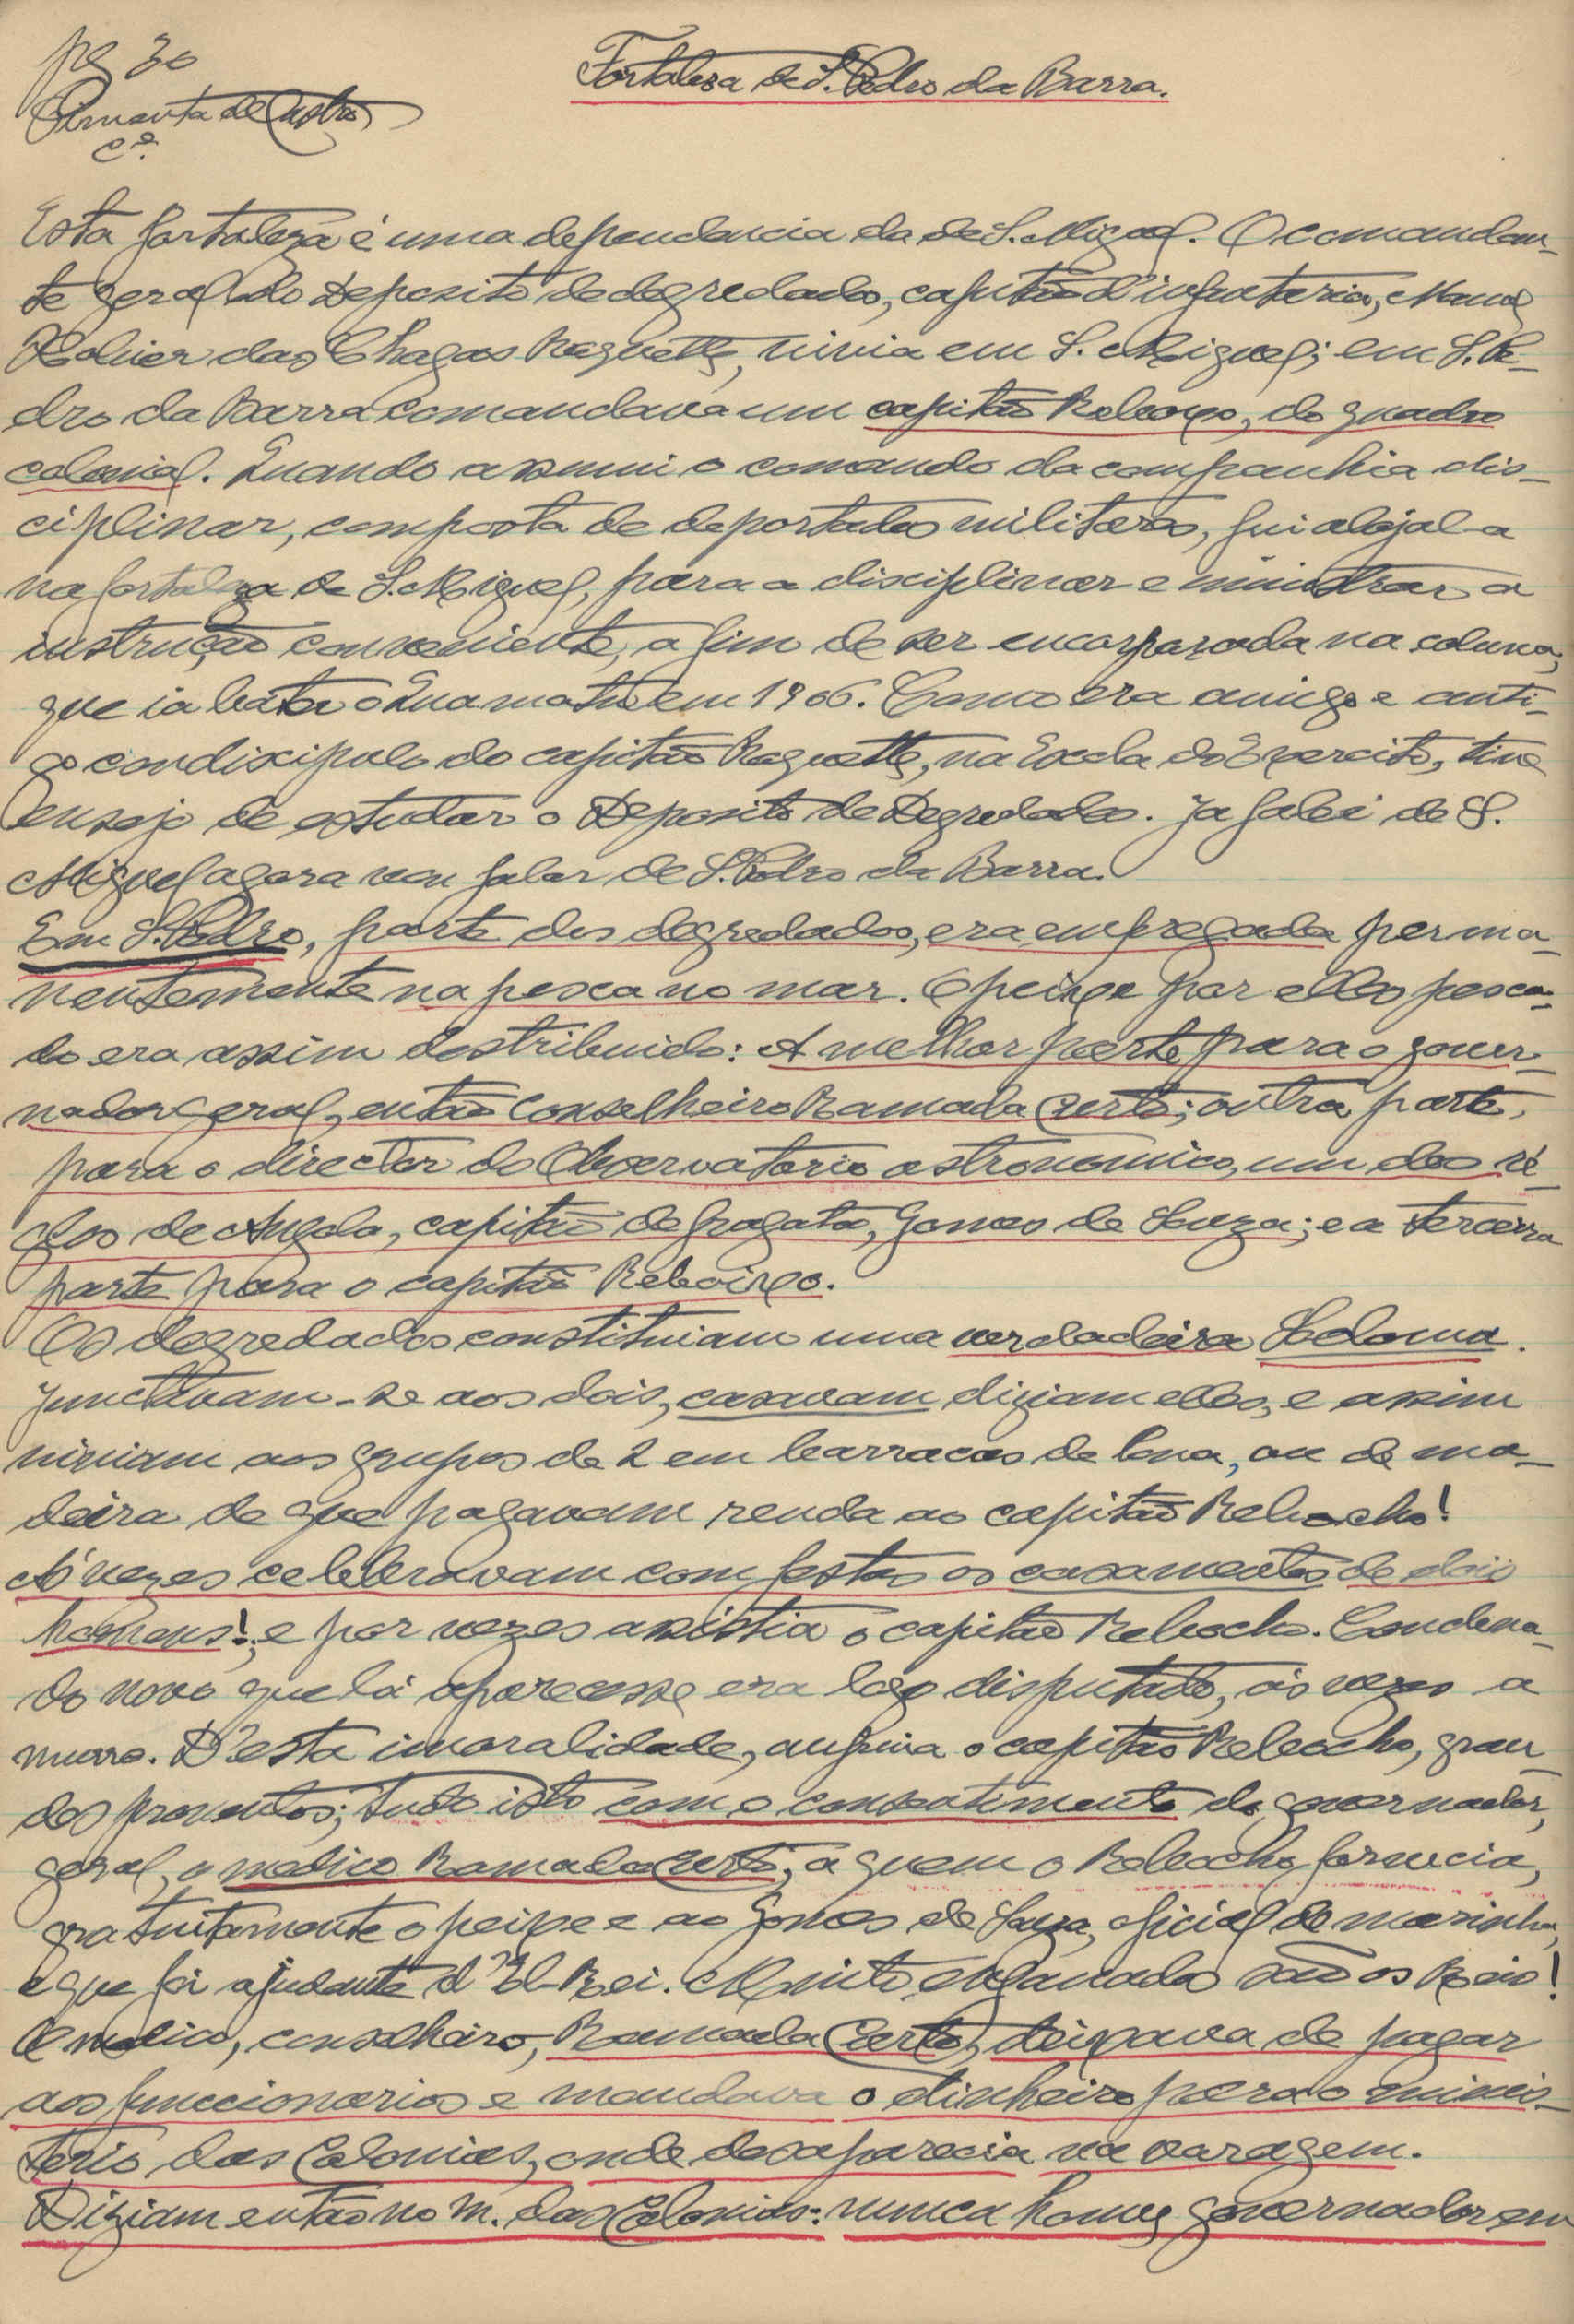 pg 30
Fortaleza de S. Pedro da Barra.
Pimenta de Castro
Cel.
Esta fortaleza é uma dependencia da de S. Miguel. O comandan-
te geral do Deposito de degredados, capitão d'infantaria, Manuel
das Chagas Roquette, vivia em S. Miguel; em S. Pe-
dro da Barra comandava um capitão Rebocho, do quadro
colonial. Quando assumi o comando da companhia dis-
ciplinar, composta de deportados militares, fui alojal-a
na fortaleza de S. Miguel, para a disciplinar e ministrar a
instrução conveniente, a fim de ser encorporada na coluna,
que ia bater o Cuamato em 1906. Como era amigo e anti-
go condiscipulo do capitão Roquette, na Escola do Exercito, tive
ensejo de estudar o Deposito de Degredados. Ja falei de S.
Miguel agora vou falar de S. Pedro da Barra.
Em S. Pedro, parte dos degredados, era empregada perma-
nentemente na pesca no mar. O peixe por elles pesca-
do era assim destribuido: A melhor parte para o gover-
nador geral, então Conselheiro Ramada Curto; outra parte,
para o director do Observatorio astronomico, um dos ré-
gulos de Angola, capitão de fragata, Gomes de Souza; e a terceira
parte para o capitão Reboixo.
Os degredados constituiam uma verdadeira Sodoma.
Junctavam-se aos dois, casavam diziam elles, e assim
viviam aos grupos de 2 em barracas de lona, ou de ma-
deira de que pagavam renda ao capitão Rebocho!
Ás vezes celebravam com festas os casamentos de dois
homens!; e por vezes assistia o capitão Rebocho. Condena-
do novo que lá aparecesse era logo disputado, ás vezes a
murro. D'esta imoralidade, auferia o capitão Rebocho, gran-
des proventos; tudo isto com o consentimento do governador,
geral, o medico Ramada Curto, a quem o Rebocho fornecia,
gratuitamente o peixe e ao Gomes de Souza, oficial de marinha,
e que foi ajudante d'El-Rei. Muito enganados são os Reis!
O medico, conselheiro, Ramada Curto, deixava de pagar
aos funccionarios e mandava o dinheiro para o minis-
terio das Colonias, onde desaparecia na voragem.
Diziam então no M. das Colonias: nunca houve governador em